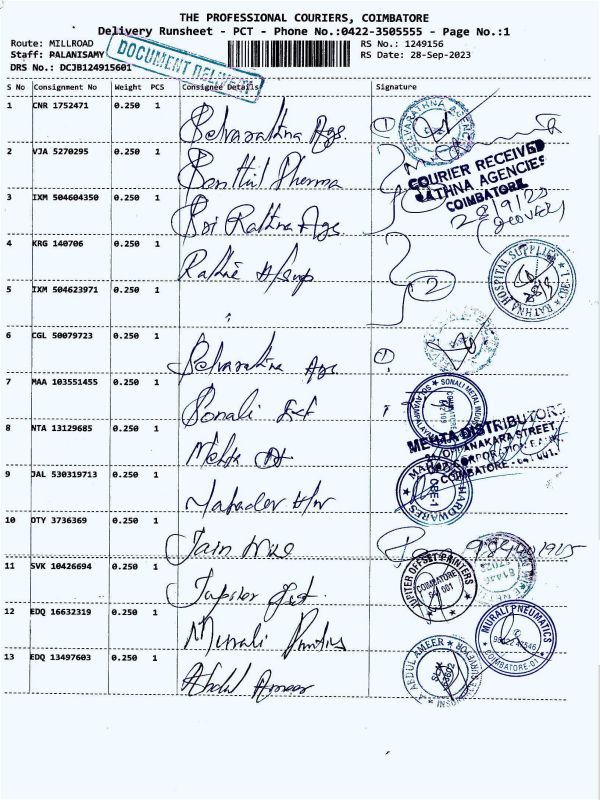 THE PROFESSIONAL COURIERS, COIMBATORE
Delivery Runsheet - PCT - Phone No.:0422-3505555 - Page No.:1
Route: MILLROAD
RS No.: 1249156
Staff: PALANISAMY
RS Date: 28-Sep-2023
DRS No.: DCJB124915601
DOCUMENT DELIVERY
S No Consignment No Weight PCS Consignee Details Signature
1 CNR 1752471 0.250 1 Selvarathna Ags. 1
SELVARATHNA AGENCIES
2 VJA 5270295 0.250 1 Senthil Pharma
COURIER RECEIVED
RATHNA AGENCIES
COIMBATORE
28/9/23
3 IXM 504604350 0.250 1 Sri Rathna Ags
4 KRG 140706 0.250 1 Rathna H/Sup 2
RATHNA HOSPITAL SUPPLIES
5 IXM 504623971 0.250 1 "
6 CGL 50079723 0.250 1 Selvarathna Ags 1
7 MAA 103551455 0.250 1 Sonali
SONALI METAL
8 NTA 13129685 0.250 1 Mehta
MEHTA DISTRIBUTORS
STREET,
CORPORATION
COIMBATORE - 641 001.
9 JAL 530319713 0.250 1 Mahadev H/W
HARDWARES
CBE-1
10 OTY 3736369 0.250 1 Jain
11 SVK 10426694 0.250 1 Jupiter
JUPITER OFFSET PRINTERS
COIMBATORE
641 001
12 EDQ 16632319 0.250 1 Murali
MURALI PNEUMATICS
COIMBATORE-01
13 EDQ 13497603 0.250 1 Abdul Ameer
J. ABDUL AMEER